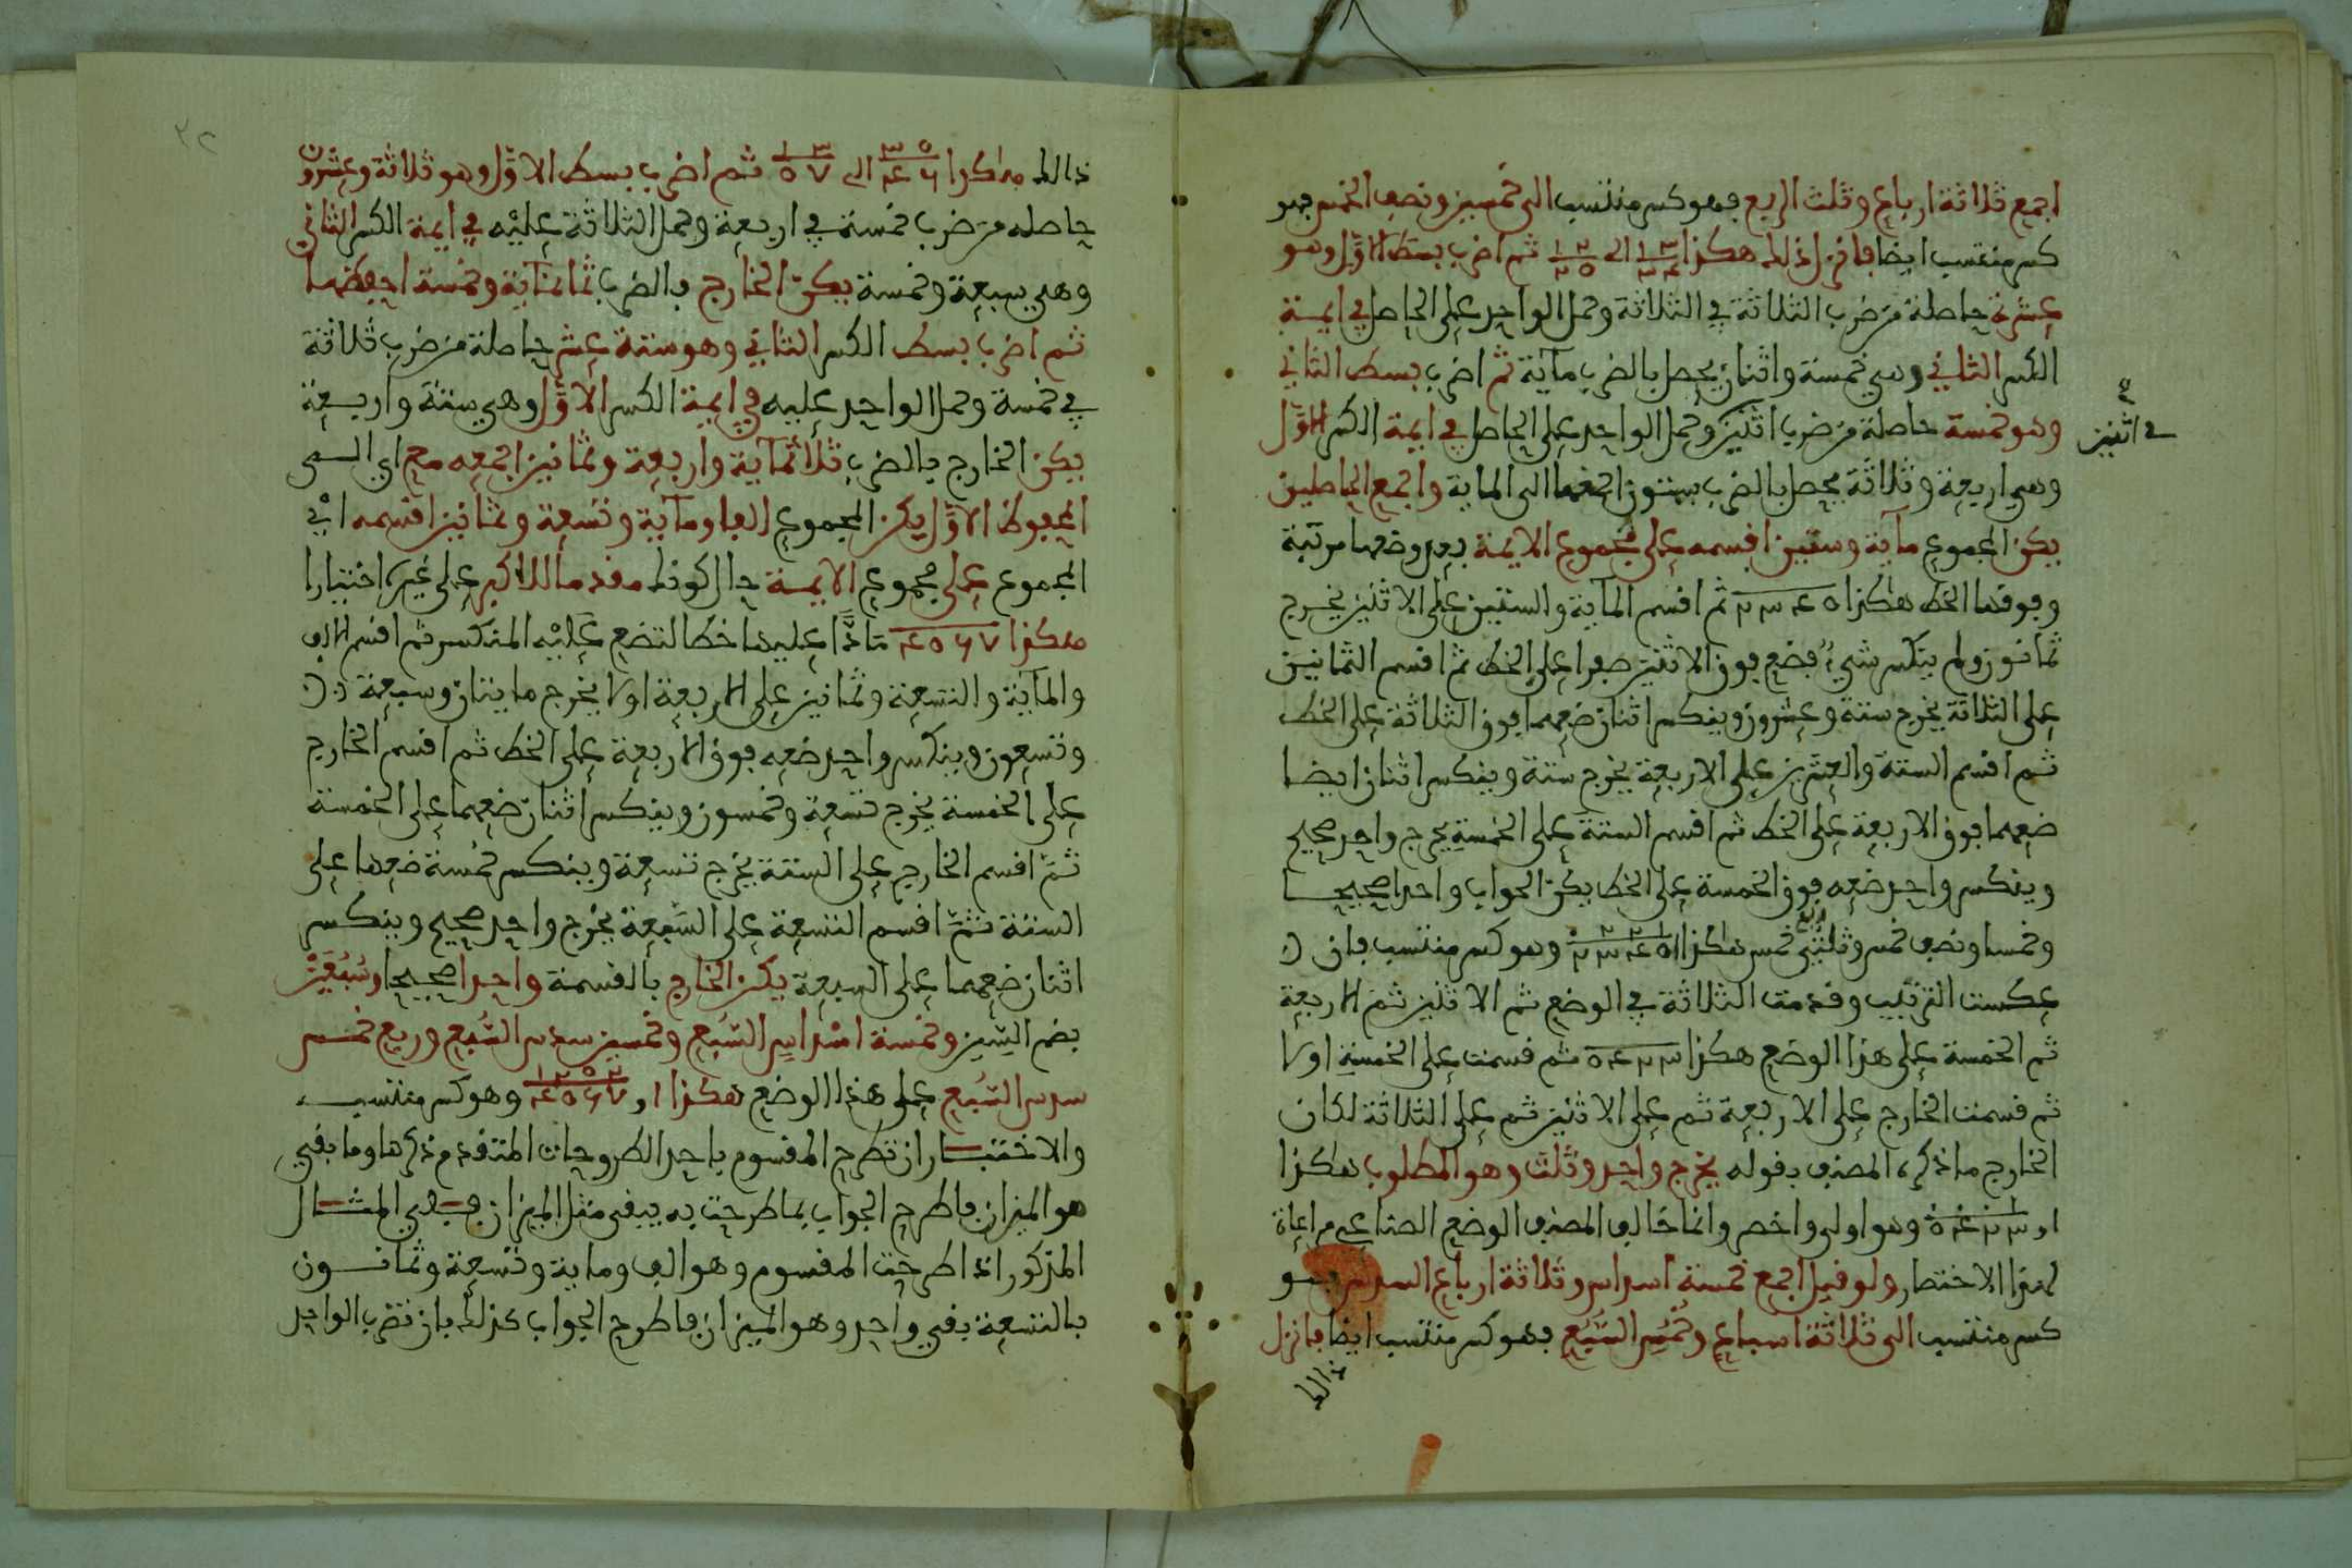 اجمع ثلاثة ارباع وثلث الربع فهو كسر منتسب الى خمسين ونصف الخمس فهو
كسر منتسب ايضا فانزل ذلك هكذا ١ ٣ / ٣ ٤ الى ١ ٢ / ٢ ٥ ثم اضرب بسط الاول وهو
عشرة حاصلة من ضرب الثلاثة في الثلاثة وحمل الواحد على الحاصل في ايمة
الكسر الثاني وهي خمسة واثنان يحصل بالضرب مآية ثم اضرب بسط الثاني
وهو خمسة حاصلة من ضرب اثنين وحمل الواحد على الحاصل في ايمة الكسر الاول
في اثنين
وهي اربعة وثلاثة يحصل بالضرب ستون اجمعها الى الماية واجمع الحاصلين
يكن المجموع مآية وستين اقسمه على مجموع الايمة بعد وضعها مرتبة
وفوقها الخط هكذا ٢ ٣ ٤ ٥ ثم اقسم المآية والستين على الاثنين يخرج
ثمانون ولم ينكسر شيء فضع فوق الاثنين صفرا على الخط ثم اقسم الثمانين
على الثلاثة يخرج ستة وعشرون وينكسر اثنان ضعهما فوق الثلاثة على الخط
ثم اقسم الستة والعشرين على الاربعة يخرج ستة وينكسر اثنان ايضا
ضعهما فوق الاربعة على الخط ثم اقسم الستة على الخمسة يخرج واحد صحيح
وينكسر واحد ضعه فوق الخمسة على الخط يكن الجواب واحدا صحيحا
وخمسا ونصف خمس وثلثي ربع خمس هكذا ١ ٠ ٢ ٢ ١ / ٢ ٣ ٤ ٥ وهو كسر منتسب فان
عكست الترتيب وقدمت الثلاثة في الوضع ثم الاثنين ثم الاربعة
ثم الخمسة على هذا الوضع هكذا ٣ ٢ ٤ ٥ ثم قسمت على الخمسة اولا
ثم قسمت الخارج على الاربعة ثم على الاثنين ثم على الثلاثة لكان
الخارج ما ذكره المصنف بقوله يخرج واحد وثلث وهو المطلوب هكذا
١ و ١ / ٣ ٢ ٤ ٥ وهو اولى واخصر وانما خالف المصنف الوضع الصناعي مراعاة
لهذا الاختصار ولو قيل اجمع خمسة اسداس وثلاثة ارباع السدس وهو
كسر منتسب الى ثلاثة اسباع وخمس السبع فهو كسر منتسب ايضا فانزل
ذالك
٣٢
ذالك هاكذا ٣ ٥ / ٤ ٦ الى ١ ٣ / ٥ ٧ ثم اضرب بسط الاول وهو ثلاثة وعشرون
حاصله من ضرب خمسة في اربعة وحمل الثلاثة عليه في ايمة الكسر الثاني
وهي سبعة وخمسة يكن الخارج بالضرب ثمانمآية وخمسة احفظها
ثم اضرب بسط الكسر الثاني وهو ستة عشر حاصلة من ضرب ثلاثة
في خمسة وحمل الواحد عليه في ايمة الكسر الاول وهي ستة واربعة
يكن الخارج بالضرب ثلاثمآية واربعة وثمانين اجمعه مع اي الى
المحفوظ الاول يكن المجموع الفا ومآية وتسعة وثمانين اقسمه اي
المجموع على مجموع الايمة حال كونك مقدما للاكبر على غيره اختيارا
هكذا ٤ ٥ ٦ ٧ مادا عليها خطا لتضع عليه المنكسر ثم اقسم الالف
والمآية والتسعة وثمانين على الاربعة اولا يخرج مايتان وسبعة
وتسعون وينكسر واحد ضعه فوق الاربعة على الخط ثم اقسم الخارج
على الخمسة يخرج تسعة وخمسون وينكسر اثنان ضعهما على الخمسة
ثم اقسم الخارج على الستة يخرج تسعة وينكسر خمسة ضعها على
الستة ثم اقسم التسعة على السبعة يخرج واحد صحيح وينكسر
اثنان ضعهما على السبعة يكن الخارج بالقسمة واحدا صحيحا وسبعين
بضم السين وخمسة اسداس السبع وخمسين سدس السبع وربع خمس
سدس السبع على هذا الوضع هكذا ١ و ١ ٢ ٥ ٢ / ٤ ٥ ٦ ٧ وهو كسر منتسب
والاختبار ان تطرح المقسوم باحد الطروحات المتقدم ذكرها وما بقي
هو الميزان فاطرح الجواب بما طرحت به يبقى مثل الميزان ففي المثال
المذكور اذا طرحت المقسوم وهو الف وماية وتسعة وثمانون
بالتسعة بقي واحد وهو الميزان فاطرح الجواب كذلك بان تضرب الواحد